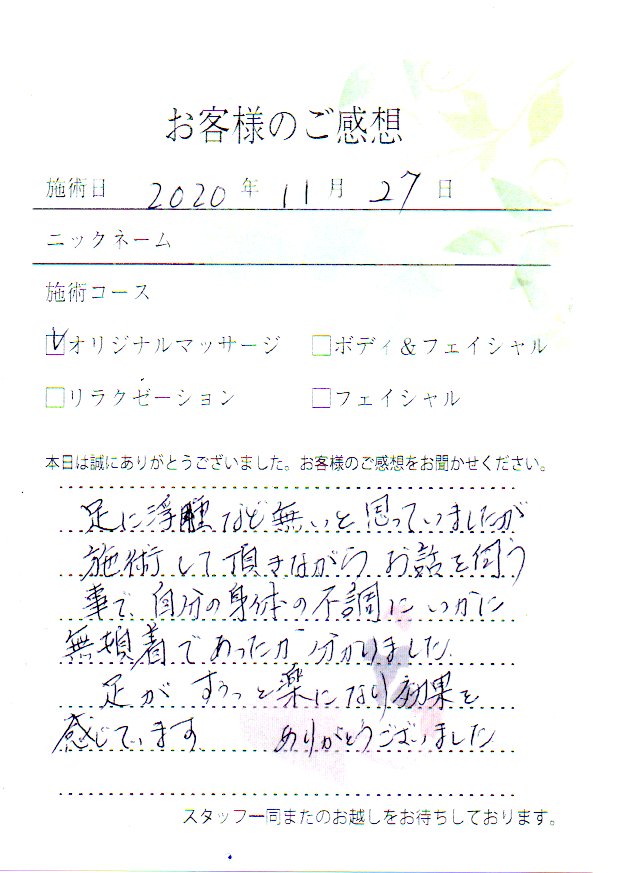 お客様のご感想
施術日 2020年 11月 27日
ニックネーム
施術コース
☑オリジナルマッサージ □ボディ&フェイシャル
□リラクゼーション □フェイシャル
本日は誠にありがとうございました。お客様のご感想をお聞かせください。
足に浮腫など無いと思っていましたが
施術して頂きながら お話を伺う
事で、自分の身体の不調にいかに
無頓着であったか分かりました。
足が すうっと楽になり効果を
感じています ありがとうございました
スタッフ一同またのお越しをお待ちしております。